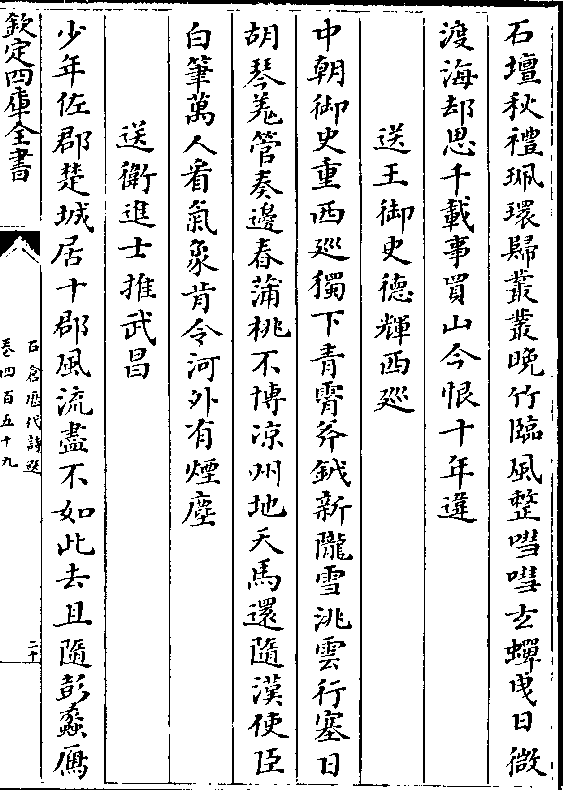 石壇秋禮珮環歸叢叢晚竹臨風整嘒嘒玄蟬曳日微
渡海却思千載事買山今恨十年違
送王御史德輝西廵
中朝御史重西廵獨下青霄斧鉞新隴雪洮雲行塞日
胡琴羗管奏邊春蒲桃不博凉州地天馬還隨漢使臣
白筆萬人看氣象肯令河外有煙塵
送衛進士推武昌
少年佐郡楚城居十郡風流盡不如此去且隨彭蠡鴈
欽定四庫全書
石倉歷代詩選
卷四百五十九
二十